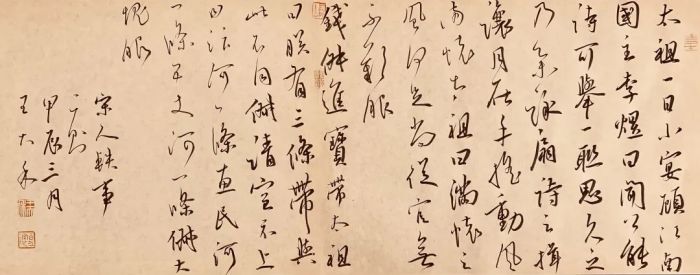 太祖一日小宴顧江南
國主李煜曰聞公能
詩可舉一聯思久之
乃舉詠扇詩云揖
讓月在手搖動風
滿懷太祖曰滿懷之
風何足尚從官無
不歎服
錢俶進寶帶太祖
曰朕有三條帶與
此不同俶請宣示上
曰汴河一條惠民河
一條五丈河一條俶大
愧服
宋人軼事
二則
甲辰三月
王大